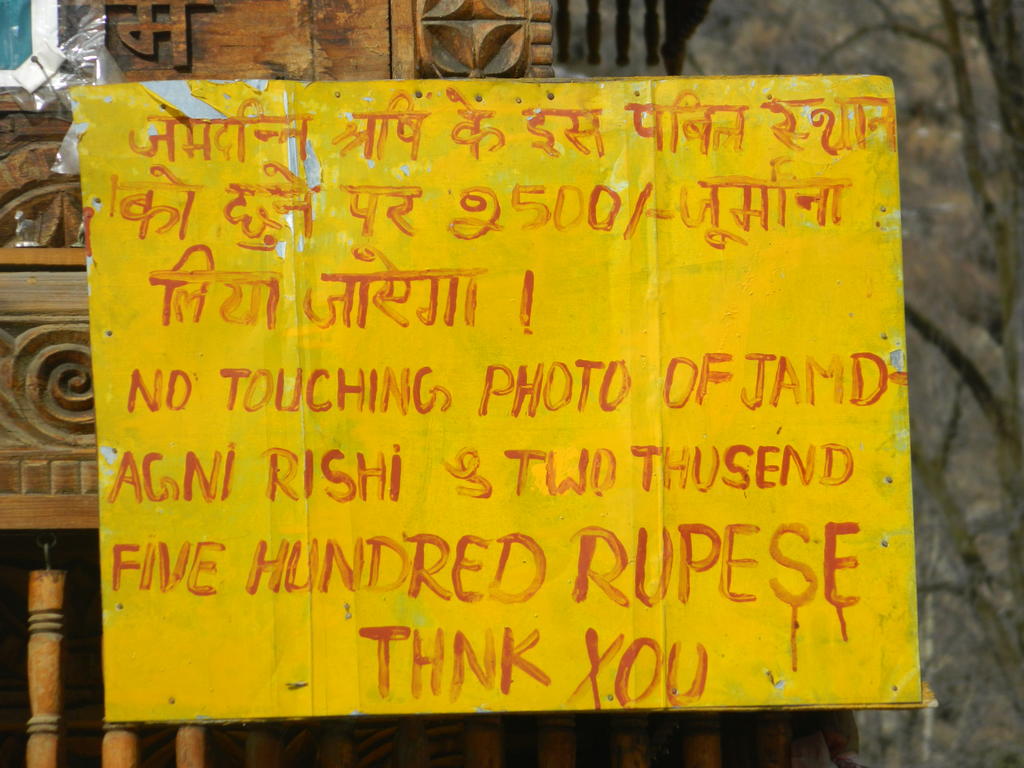 जमदग्नि ऋषि के इस पवित्र स्थान
को छुने पर 2500/- जुर्माना
लिया जाऐगा !
NO TOUCHING PHOTO OF JAMD-
AGNI RISHI & TWO THUSEND
FIVE HUNDRED RUPESE
THNK YOU